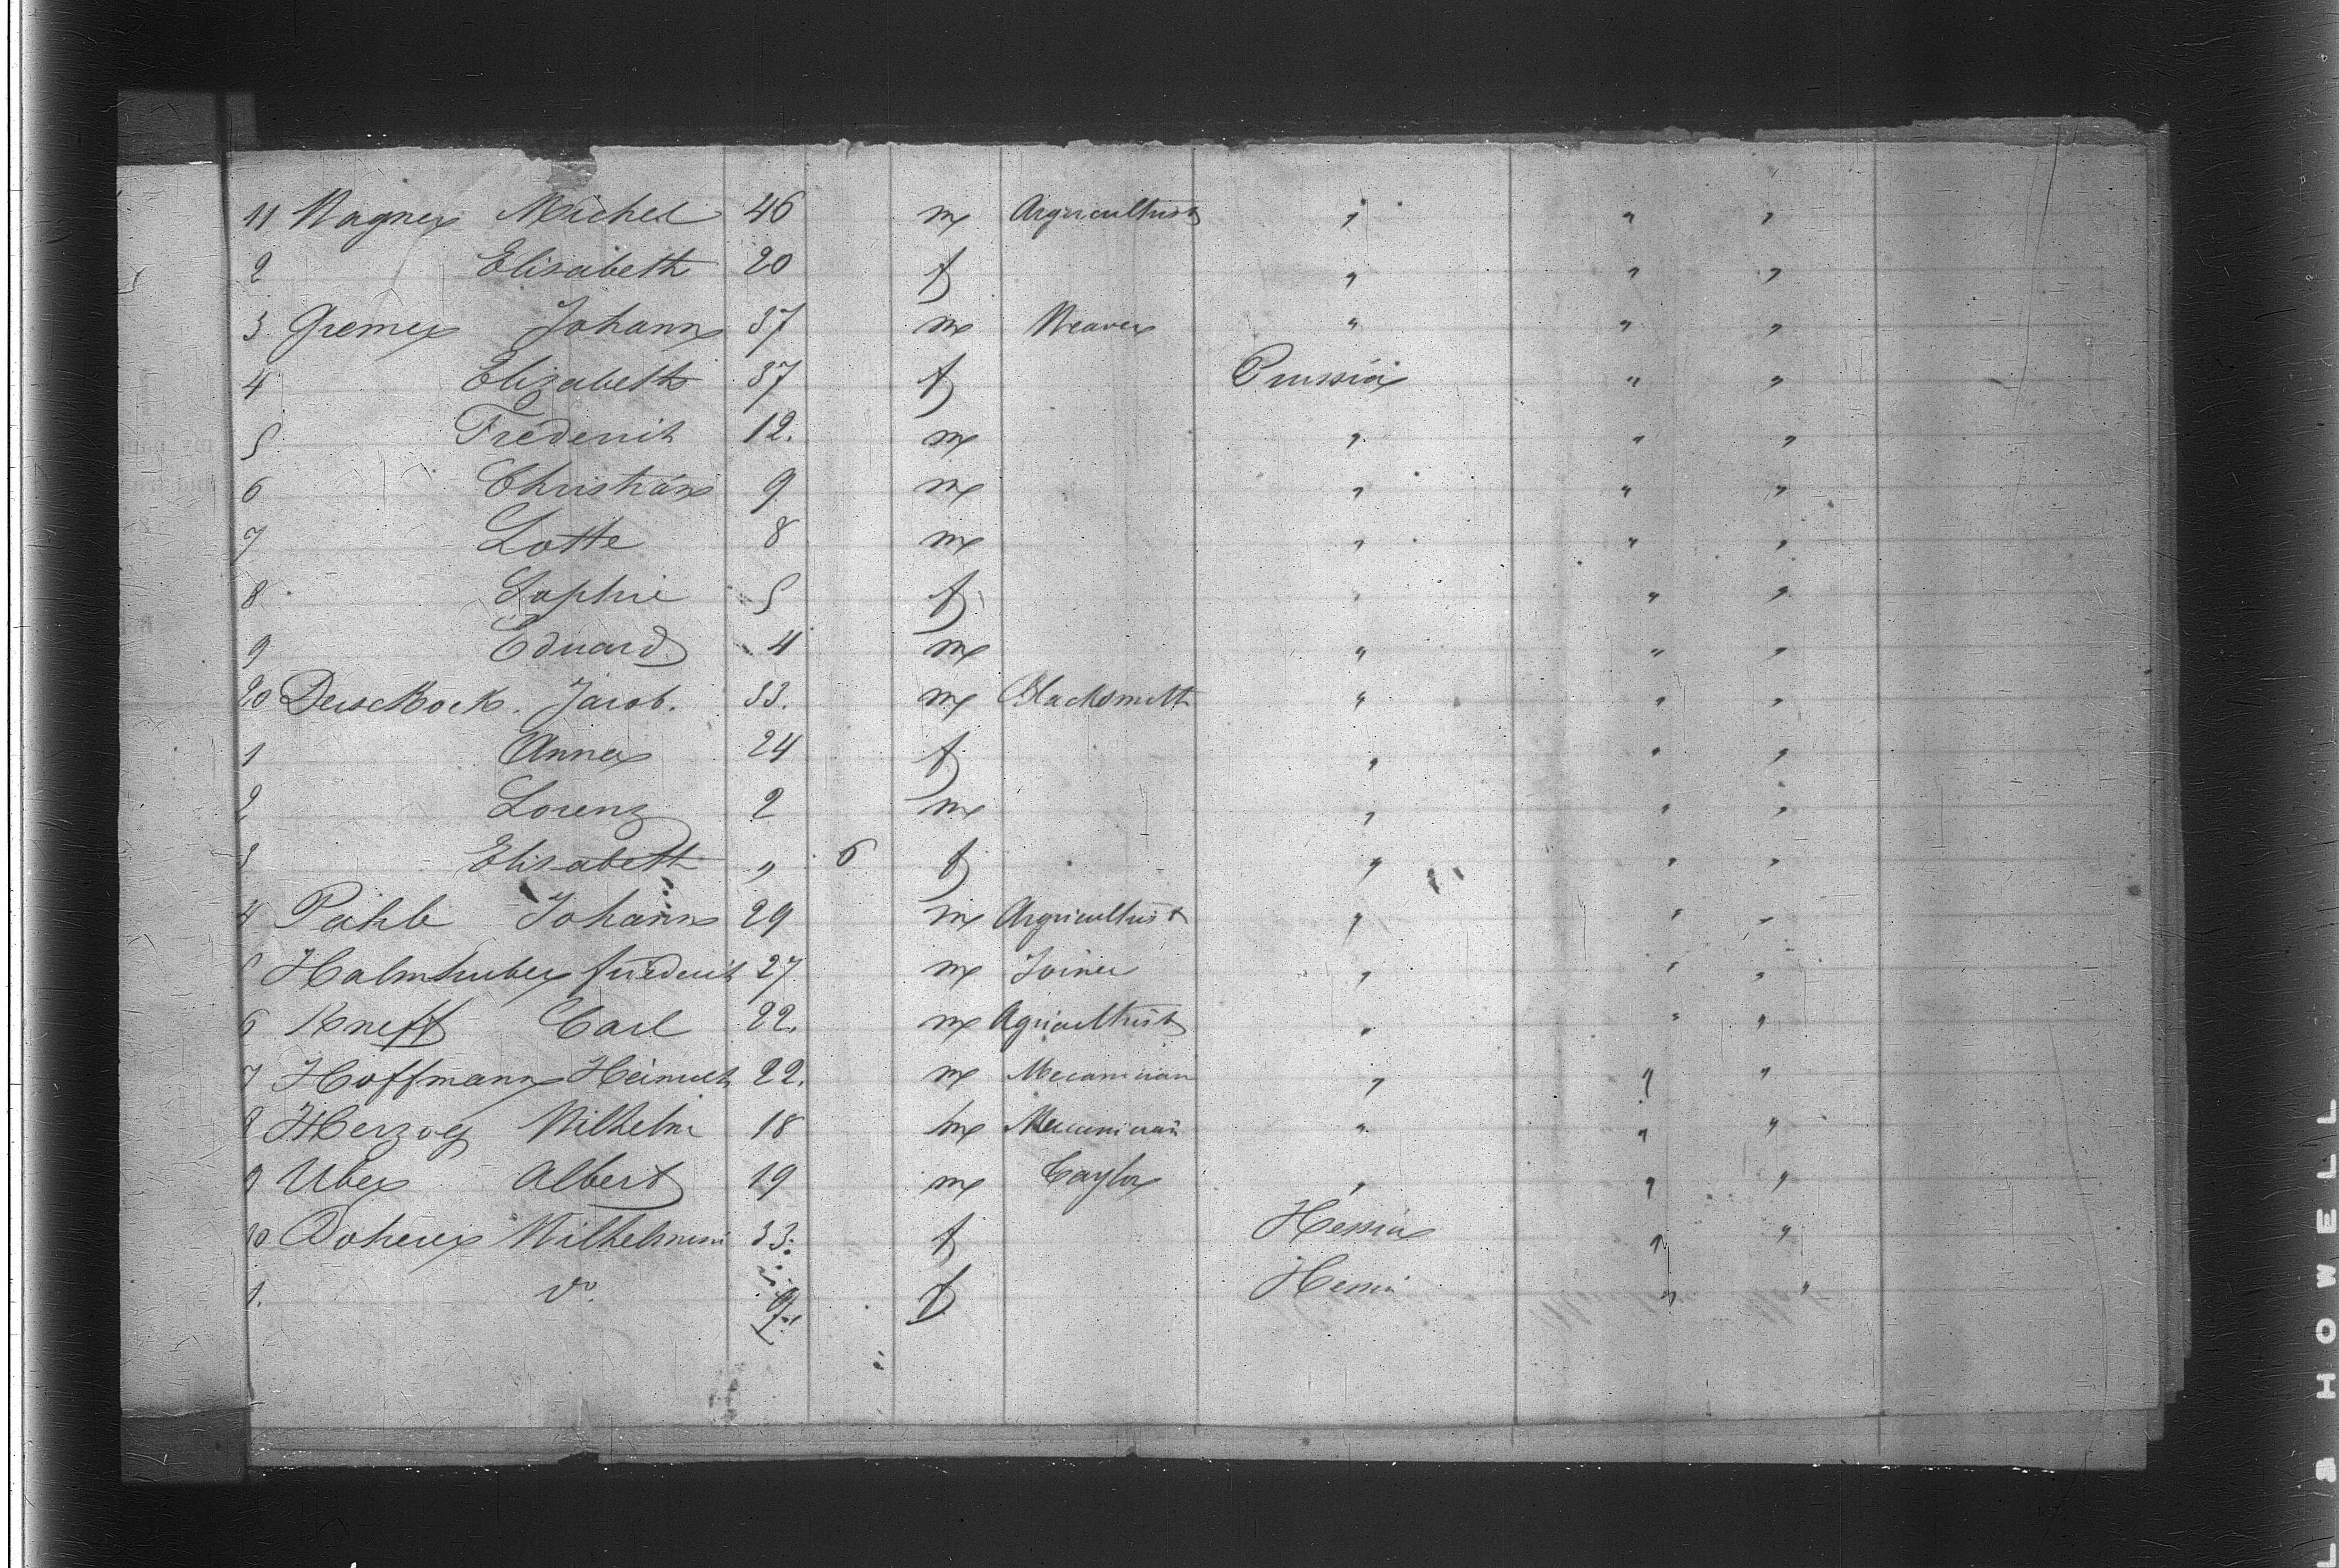 11 Wagner Michel 46 m Argricultust " " "
2 Elisabeth 20 f " " "
3 Gremer Johann 37 m Weaver " " "
4 Elizabeth 37 f Prussia " "
5 Frederick 12. m " " "
6 Christian 9 m " " "
7 Lotte 8 m " " "
8 Sophie 5 f " " "
9 Eduard 4 m " " "
20 Jacob. 33. m Blacksmith " " "
1 Anna 24 f " " "
2 Lorenz 2 m " " "
3 Elisabeth " 6 f " " "
4 Pahle Johann 29 m Argricultust " " "
5 Halmhuber friederich 27 m Joiner " " "
6 Kneff Carl 22. m Agricultust " " "
7 Hoffmann Heinrich 22. m Mecanician " " "
8 Herzog Wilhelm 18 m Mecanician " " "
9 Uber Albert 19 m Taylor " " "
30 Wilhelmini 33. f Hessia " "
1. do. f Hessia " "
L S HOWELL